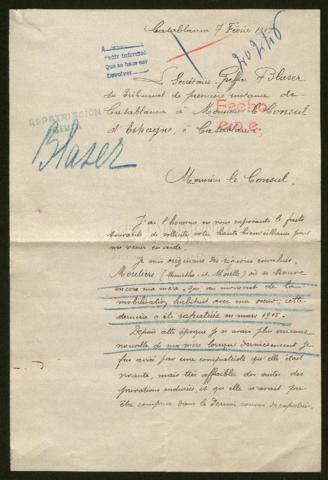 Casablanca 7 Février
Pedir informes
que se hace ser
devolver
Le Secrétaire-Greffier Blaser
du Tribunal de première instance de
Casablanca à Monsieur le Consul
d'Espagne, à Casablanca.
REPATRIACION
Hecho
Blaser
Monsieur le Consul,
J'ai l'honneur, en vous exposant les faits
suivants de solliciter votre haute bienveillance pour
me venir en aide.
Je suis originaire des régions envahies,
Moutiers (Meurthe-et-Moselle) où se trouve
encore ma mère, qui, au moment de la
mobilisation, habitait avec ma sœur; cette
dernière a été rapatriée en mars 1915.
Depuis cette époque je n'avais plus aucune
nouvelle de ma mère lorsque dernièrement je
fus avisé par une compatriote qu'elle était
vivante, mais très affaiblie des suites des
privations endurées et qu'elle n'avait pu
être comprise dans le dernier convoi de rapatriés.